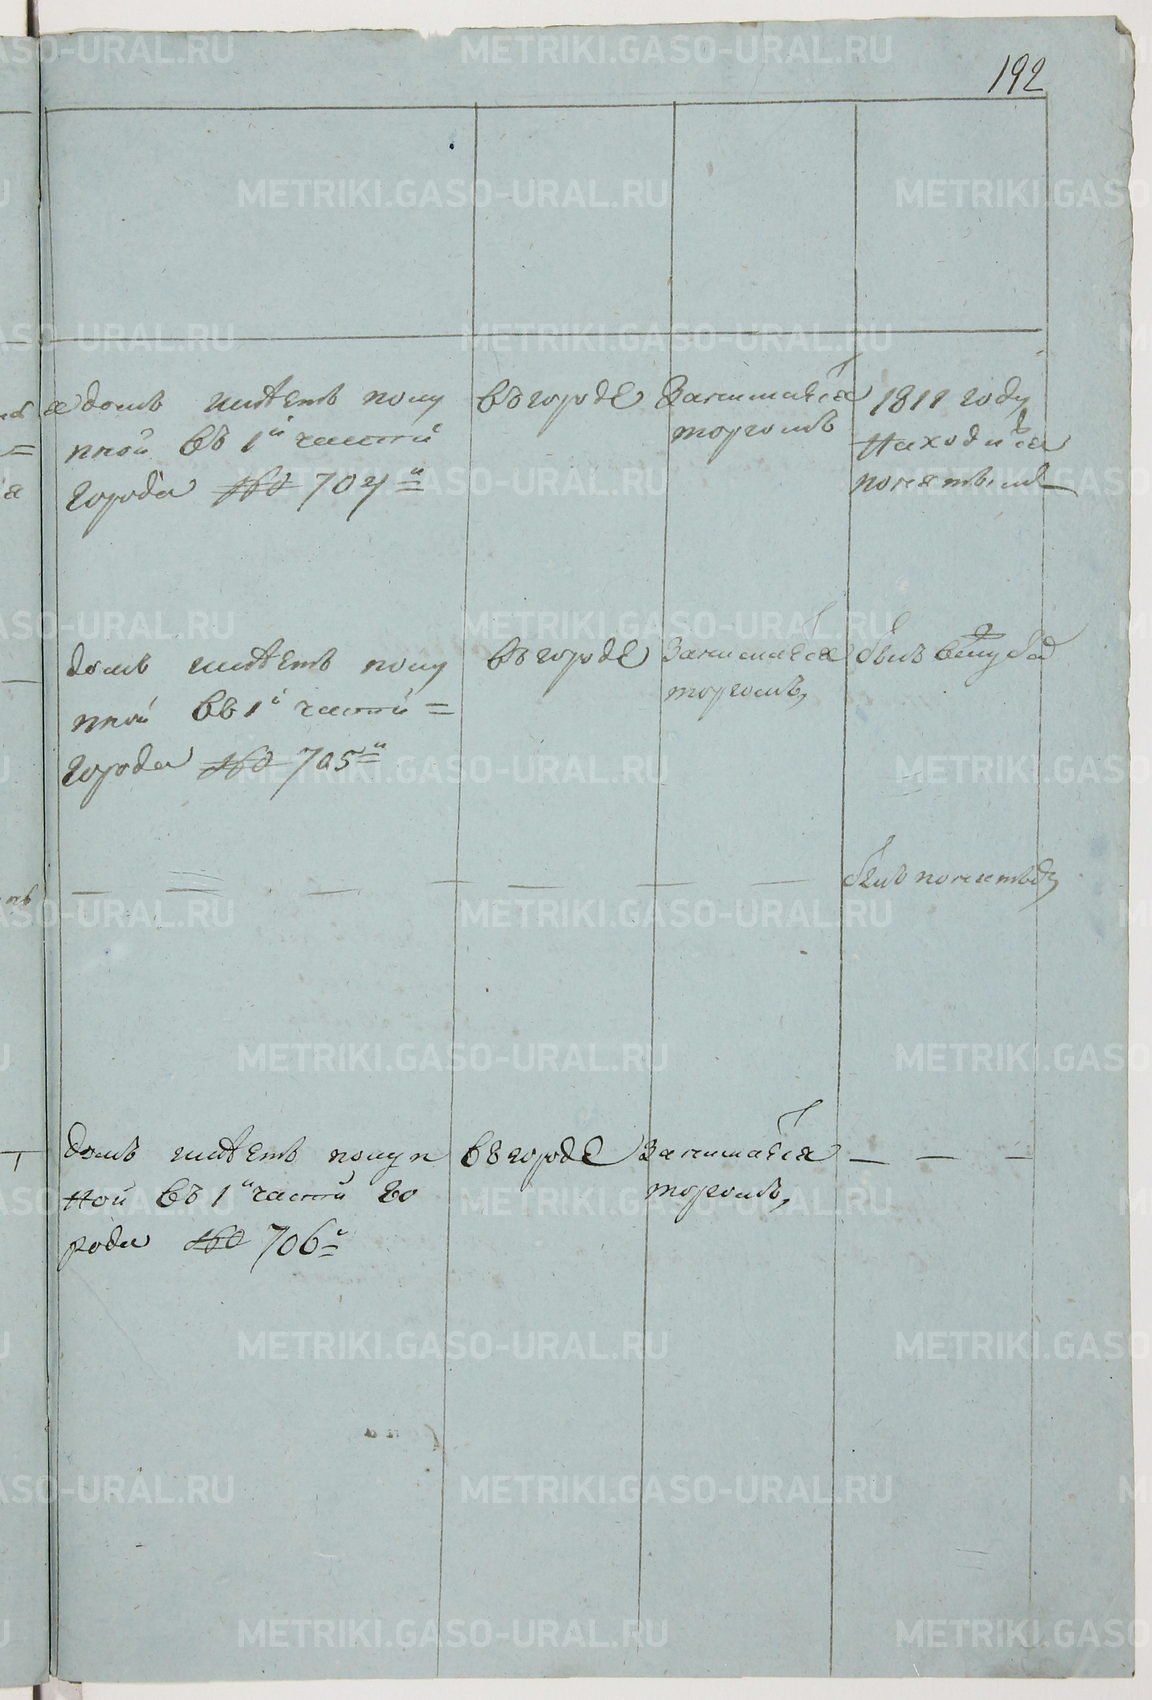 192
домъ имѣетъ покуп
ной въ 1й части
города № 704й
въ городе
Занимается
торгомъ
1811 году
находился
домъ имѣетъ покуп
ной въ 1й части =
города № 705й
въ городе
Занимается
торгомъ,
былъ
былъ
домъ имѣетъ покуп
ной въ 1й части го
рода № 706й
въ городе
Занимается
торгомъ,
METRIKI.GASO-URAL.RU